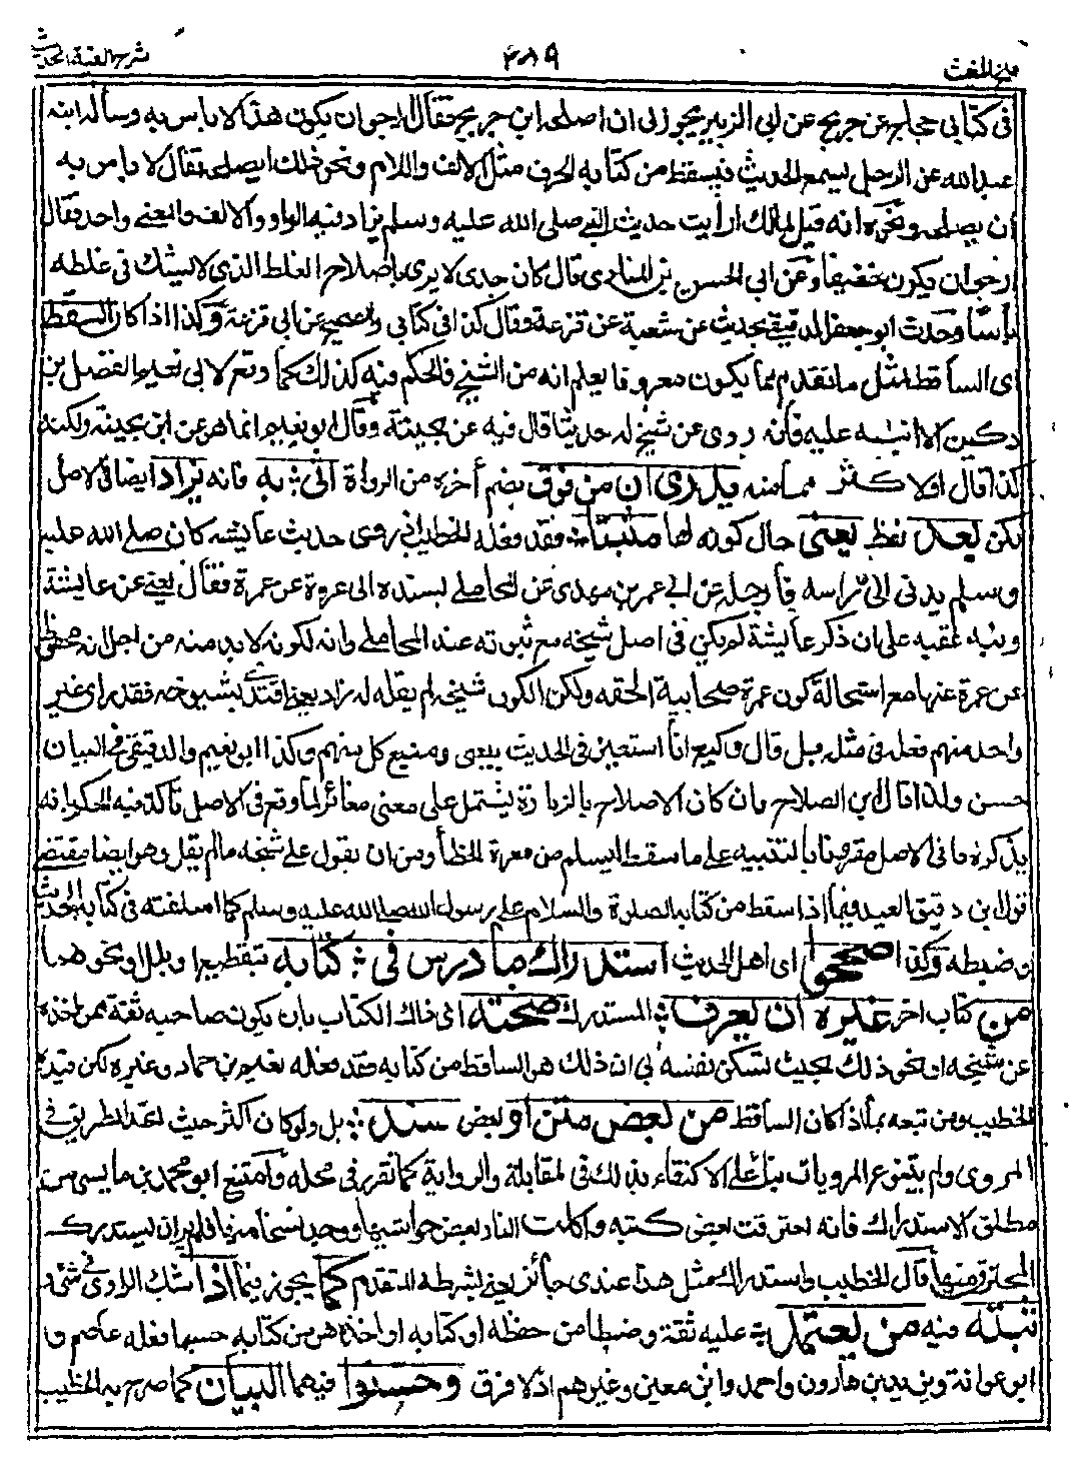 فتح المغيث
٢٨٩
شرح الفية الحديث
فى كتابى حجاج عن جريج عن ابى الزبير يجوز لى ان اصلحه ابن جريج فقال ارجو ان يكون هذا لا باس به وساله ابنه
عبد الله عن الرجل يسمع الحديث فيسقط من كتابه الحرف مثل الالف واللام ونحو ذلك ايصلحه فقال لا باس به
ان يصلحه ونحوه انه قيل لمالك ارأيت حديث النبى صلى الله عليه وسلم يزاد فيه الواو والالف والمعنى واحد فقال
ارجو ان يكون خفيفا وعن ابى الحسن بن المنادى قال كان جدى لا يرى باصلاح الغلط الذى لا يشك فى غلطه
بأسا وحدث ابو جعفر الدقيقى بحديث عن شعبة عن قزعة وقال كذا فى كتابى والصحيح عن ابى قزعة وكذا اذا كان السقط
اى الساقط مثل ما تقدم مما يكون معروفا يعلم انه من الشيخ فالحكم فيه كذلك كما وقع لابى نعيم الفضل بن
دكين الا انه نبه عليه فانه روى عن شيخ له حديثا قال فيه عن بحينة وقال ابو نعيم انما هو عن ابن بحينة ولكنه
كذا قال اولا كثر مما منه يدرى ان من فوق بضم أخره من الرواة اتى به فانه يزاد ايضا فى الاصل
لكن بعد لفظ يعنى حال كونه لها مثبتا فقد فعله الخطيب اذ روى حديث عايشه كان صلى الله عليه
وسلم يدنى الى راسه فارجله عن ابى عمر بن مهدى عن المحاملى بسنده الى عروة عن عمرة فقال يعنى عن عايشة
ونبه عقبه على ان ذكر عايشة لم يكن فى اصل شيخه مع ثبوته عند المحاملى وانه لكونه لا بد منه من اجل انه محفوظ
عن عمرة عنها مع استحالة كون عمرة صحابية الحقه ولكن لكون شيخه لم يقله له زاد يعنى اقتدى بشيوخه فقد راى غير
واحد منهم فعله فى مثله بل قال وكيع انا استعين فى الحديث بيعنى وصنيع كل منهم وكذا ابو نعيم والدقيقى فى البيان
حسن ولذا قال ابن الصلاح بان كان الاصلاح بالزيادة يشتمل على معنى مغائر لما وقع فى الاصل تأكد فيه الحكم بانه
يذكره ما فى الاصل مقرونا بالتنبيه على ما سقط ليسلم من معرة الخطأ ومن ان يقول على شيخه ما لم يقل وهو ايضا مقتضى
قول ابن دقيق العيد فيما اذا سقط من كتابه الصلوة والسلام على رسول الله صلى الله عليه وسلم كما اسلفته فى كتابة الحديث
وضبطه وكذا صححوا اى اهل الحديث استدراك ما درس فى كتابه بتقطيع او بلل ونحوهما
من كتاب اخر غيره ان يعرف المستدرك صحته اى ذاك الكتاب بان يكون صاحبه ثقة ممن اخذه
عن شيخه او نحو ذلك بحيث تسكن نفسه الى ان ذلك هو الساقط من كتابه فقد فعله نعيم بن حماد وغيره لكن قيده
الخطيب ومن تبعه بما اذا كان الساقط من بعض متن او بعض سند بل ولو كان اكثر حيث اتحد الطريق فى
المروى ولم يتنوع المرويات بناء على الاكتفاء بذلك فى المقابلة والرواية كما تقرر فى محله وامتنع ابو محمد بن ماسى من
مطلق الاستدراك فانه احترقت بعض كتبه واكلت النار بعض حواشيها ووجد نسخا منها فلم ير ان يستدرك
المحترق منها قال الخطيب واستدراك مثل هذا عندى جائز يعنى بشرطه المتقدم كما يجوز فيما اذا شك الراوى فى شىء
ثبته فيه من يعتمل عليه ثقة وضبطا من حفظه او كتابه او اخذه هو من كتابه حسبما فعله عاصم و
ابو عوانة ويزيد بن هارون واحمد وابن معين وغيرهم اذ لا فرق وحسنوا فيهما البيان كما صرح به الخطيب